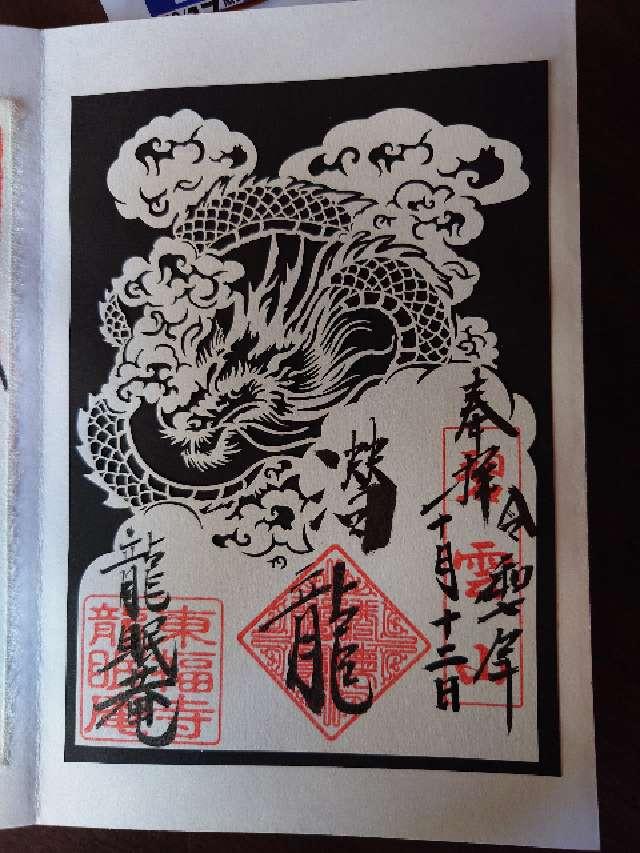 奉拝
令和七年
十月十二日
雲山
潜
龍
龍眠庵
東福寺
龍眠庵